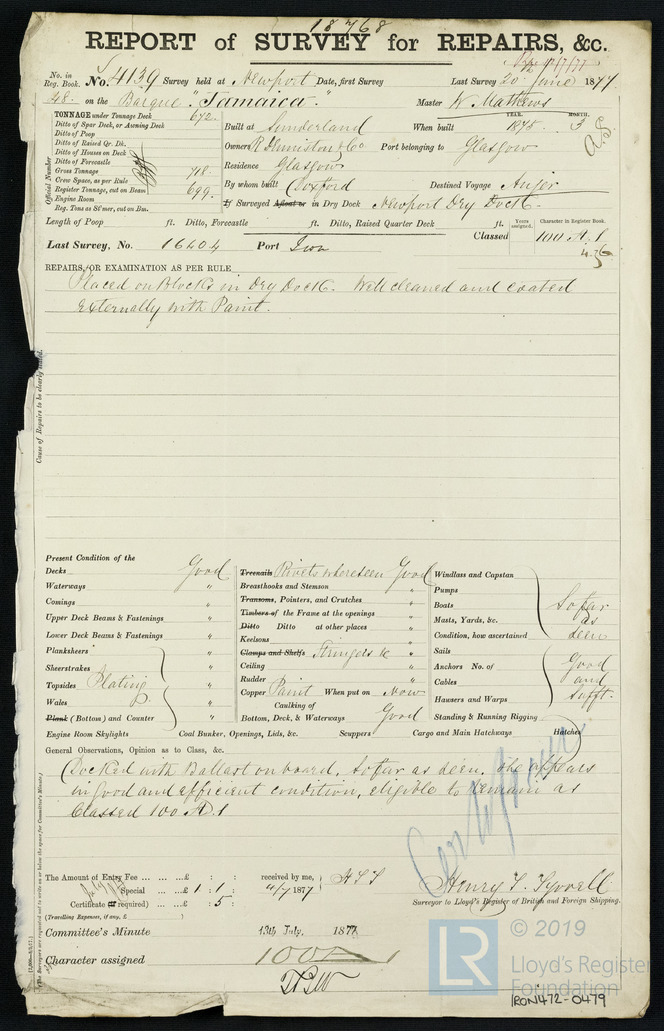 18768
REPORT of SURVEY for REPAIRS, &c.
No. in Reg. Book. No. 4139 Survey held at Newport Date, first Survey Last Survey 20 June 1877
48. on the Barque "Jamaica." Master W. Mathews
TONNAGE under Tonnage Deck 672.
Ditto of Spar Deck, or Awning Deck
Ditto of Poop
Ditto of Raised Qr. Dk.
Ditto of Houses on Deck
Ditto of Forecastle
Gross Tonnage 718.
Crew Space, as per Rule
Register Tonnage, cut on Beam 699.
Engine Room
Reg. Tons as St'mer, cut on Bm.
Official Number
YEAR. MONTH.
Built at Sunderland When built 1875. 3
Owners R. Denniston & Co Port belonging to Glasgow
Residence Glasgow
By whom built Doxford Destined Voyage Anjer
If Surveyed Afloat or in Dry Dock Newport Dry Dock.
Length of Poop ft. Ditto, Forecastle ft. Ditto, Raised Quarter Deck ft.
Years assigned. Character in Register Book.
Classed 100 A.1
4.76
Last Survey, No. 16404 Port Iron
REPAIRS, OR EXAMINATION AS PER RULE
Placed on Blocks in Dry Dock. Well cleaned and coated
externally with Paint.
Cause of Repairs to be clearly stated.
Present Condition of the
Decks Good
Waterways "
Comings "
Upper Deck Beams & Fastenings "
Lower Deck Beams & Fastenings "
Planksheers "
Sheerstrakes "
Topsides Plating "
Wales "
Plank (Bottom) and Counter "
Treenails Rivets where seen Good
Breasthooks and Stemson "
Transoms, Pointers, and Crutches "
Timbers of the Frame at the openings "
Ditto Ditto at other places "
Keelsons "
Clamps and Shelfs Stringers &c "
Ceiling "
Rudder "
Copper Paint When put on Now
Caulking of
Bottom, Deck, & Waterways Good
Windlass and Capstan
Pumps
Boats So far
Masts, Yards, &c. as
Condition, how ascertained seen
Sails
Anchors No. of Good
Cables and
Hausers and Warps sufft.
Standing & Running Rigging
Engine Room Skylights Coal Bunker, Openings, Lids, &c. Scuppers Cargo and Main Hatchways Hatches
General Observations, Opinion as to Class, &c.
Docked with Ballast on board, So far as seen, She appears
in good and efficient condition, eligible to remain as
Classed 100 A.1
The Amount of Entry Fee ... ... ...£ : : received by me,
Special ... ...£ 1 : 1 : 11/7 1877
Certificate (if required) ...£ : 5
(Travelling Expenses, if any, £ )
Henry T. Tyrrell
Surveyor to Lloyd's Register of British and Foreign Shipping.
Committee's Minute 13th July, 1877
Character assigned 100 A 1
© 2019
LR
Lloyd's Register
Foundation
IRON472-0479